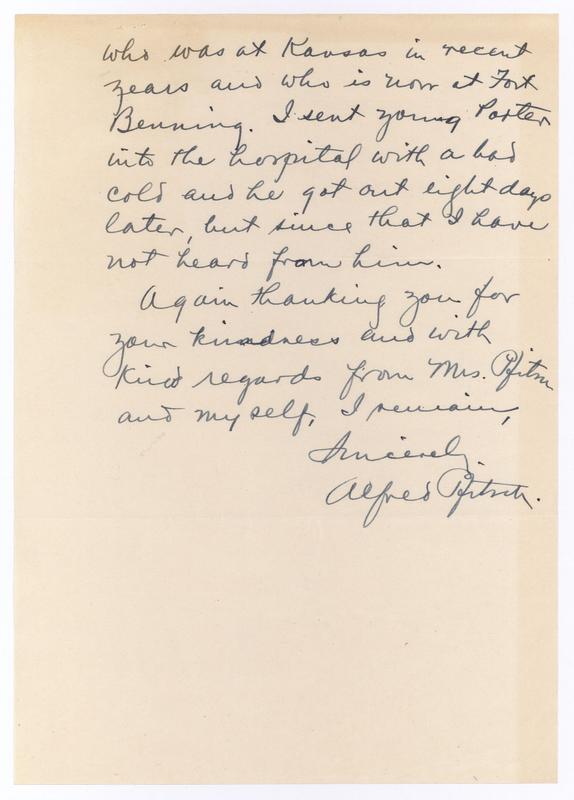 who was at Kansas in recent
years and who is now at Fort
Benning. I sent young Porter
into the hospital with a bad
cold and he got out eight days
later, but since that I have
not heard from him.
Again thanking you for
your kindness and with
kind regards from Mrs. Pfitsch
and myself, I remain,
Sincerely
Alfred Pfitsch.